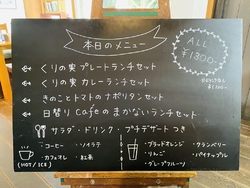 本日のメニュー
ALL
¥1300-
くりの実 プレートランチセット
くりの実 カレーランチセット
きのことトマトのナポリタンセット
日替り Cafeのまかないランチセット
サラダ・ドリンク・プチデザートつき
・コーヒー
・ソイラテ
・カフェオレ
・紅茶
(HOT/ICE)
・ブラッドオレンジ
・りんご
・グレープフルーツ
・クランベリー
・パイナップル